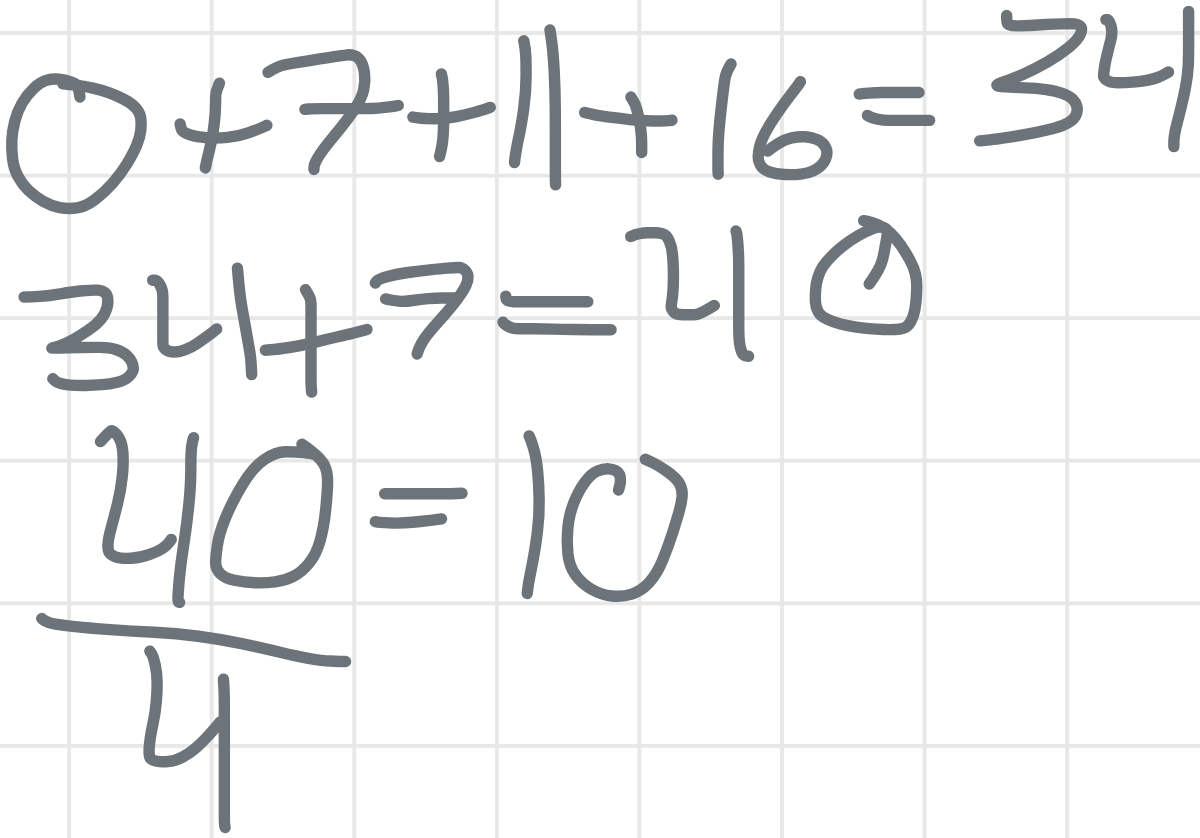 0+7+11+16=34
34+7=40
40/4=10